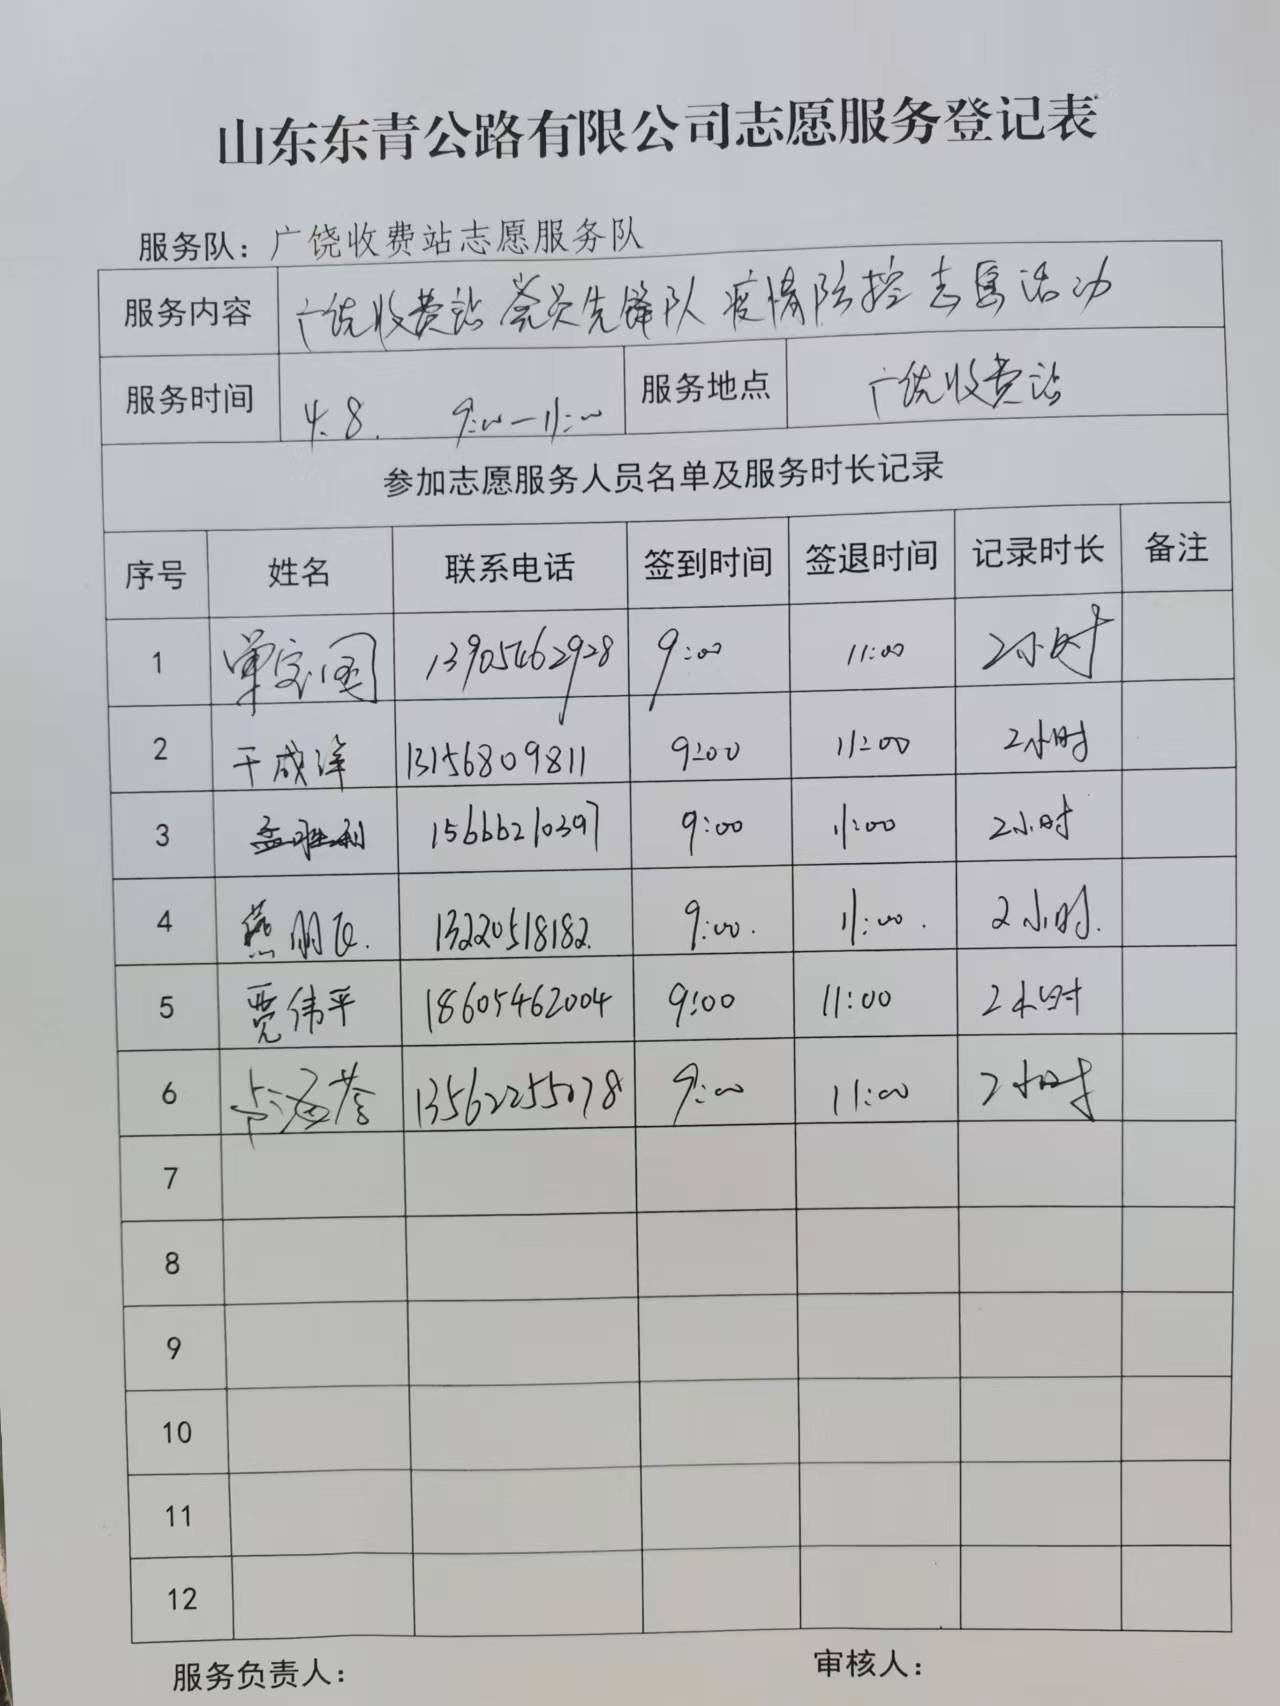 山东东青公路有限公司志愿服务登记表
服务队：广饶收费站志愿服务队
服务内容 广饶收费站党员先锋队疫情防控志愿活动
服务时间 4.8. 9:00—11:00 服务地点 广饶收费站
参加志愿服务人员名单及服务时长记录
序号 姓名 联系电话 签到时间 签退时间 记录时长 备注
1 单宝国 13905462928 9:00 11:00 2小时
2 于成洋 13156809811 9:00 11:00 2小时
3 孟胜利 15666210397 9:00 11:00 2小时
4 燕鹏飞. 13220518182. 9:00. 11:00. 2小时.
5 贾伟平 18605462004 9:00 11:00 2小时
6 13562255078 9:00 11:00 2小时
7
8
9
10
11
12
服务负责人： 审核人：